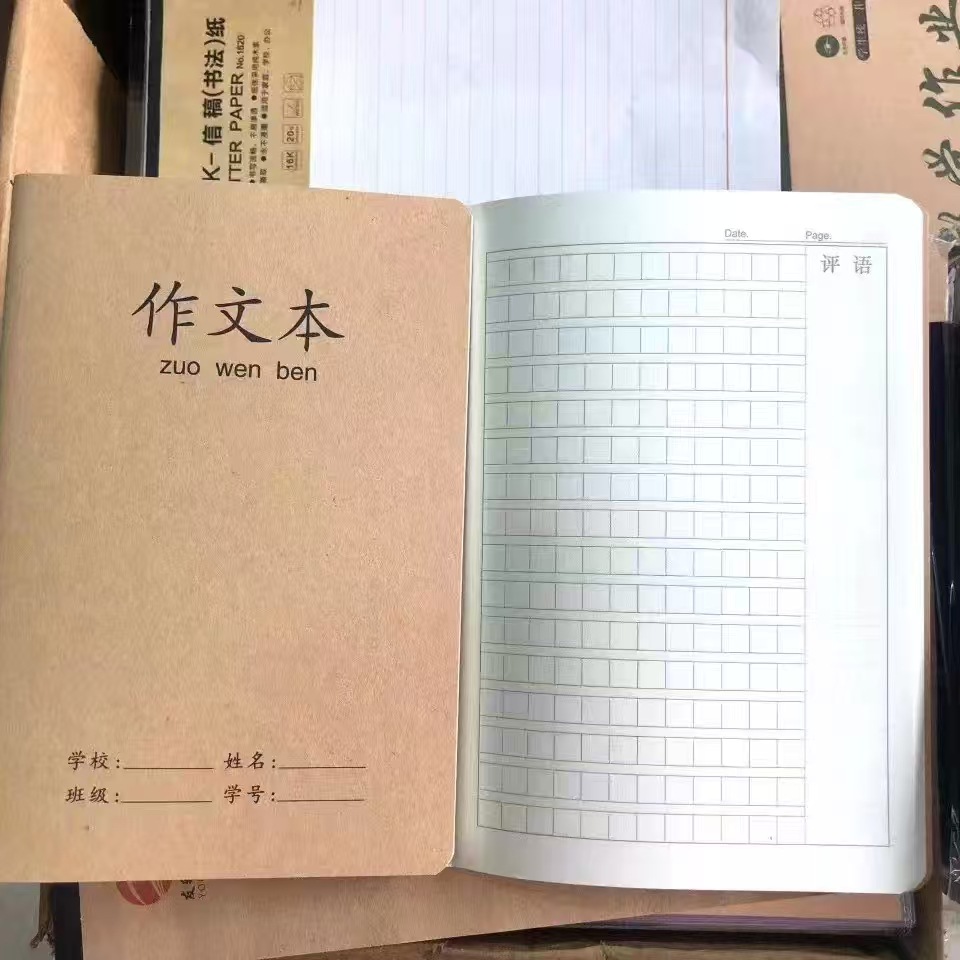 K-信稿(书法)纸
TTER PAPER No.1620
16K 20
学生
学作业
作文本
zuo wen ben
学校:
姓名:
班级:
学号:
Date.
Page.
评语
友
YO